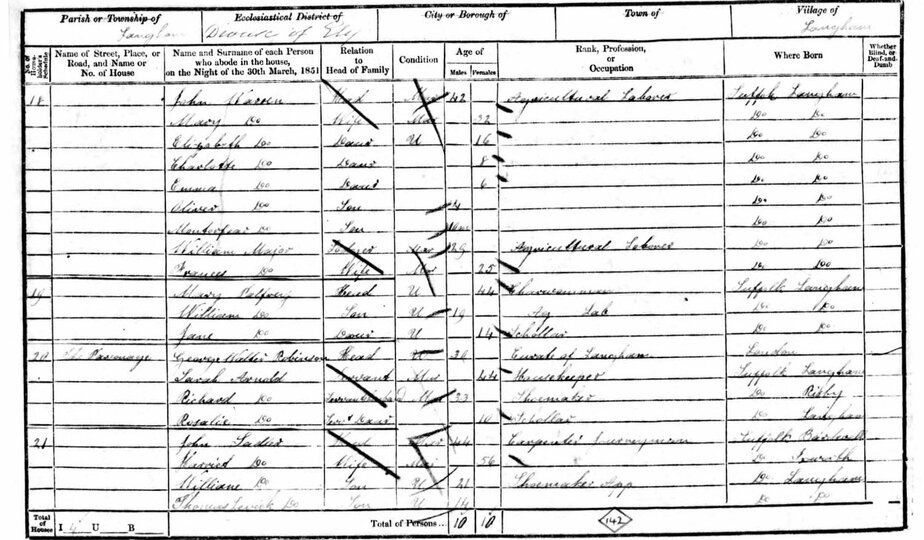 Parish or Township of Ecclesiastical District of City or Borough of Town of Village of
Diocese of Ely Langham
No. of Householder's Schedule Name of Street, Place, or Road, and Name or No. of House Name and Surname of each Person who abode in the house, on the Night of the 30th March, 1851 Relation to Head of Family Condition Age of Males Females Rank, Profession, or Occupation Where Born Whether Blind, or Deaf-and-Dumb
18 John Warren Head Mar 42 Agricultural Labourer Suffolk Langham
Mary Do Wife Mar 32 Do Do
Elizabeth Do Daur U 16 Do Do
Charlotte Daur 8 Do Do
Emma Daur 6 Do Do
Oliver Do Son 4 Do Do
Do Son Do Do
William Major Mar 29 Agricultural Labourer Do Do
Frances Do Wife Mar 25 Do Do
19 Mary Palfrey Head U 44 Charwoman Suffolk Langham
William Do Son U 19 Ag Lab Do Do
Jane Do Daur U 14 Scholar Do Do
20 The Parsonage George Walter Robinson Head U Curate of Langham London
Sarah Arnold Servant Mar 44 Housekeeper Suffolk Langham
Richard Do Mar Shoemaker Do Risby
Rosalie Do Serv's Daur 10 Scholar Do Langham
21 John Sadler Head Mar 44 Carpenter Journeyman Suffolk
Harriet Do Wife Mar 56 Do Ixworth
William Do Son U 21 Shoemaker App Do Langham
Thomas Do Son U 14 Do Do
Total of Houses I 4 U B Total of Persons... 10 10 142